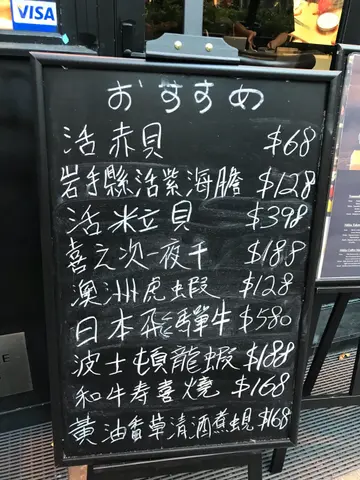 VISA
おすすめ
活赤貝 $68
岩手縣活紫海膽 $128
活粒貝 $398
喜之次一夜干 $188
澳洲虎蝦 $128
日本飛驒牛 $580
波士頓龍蝦 $188
和牛寿喜燒 $168
黃油香草清酒煮蜆 $168